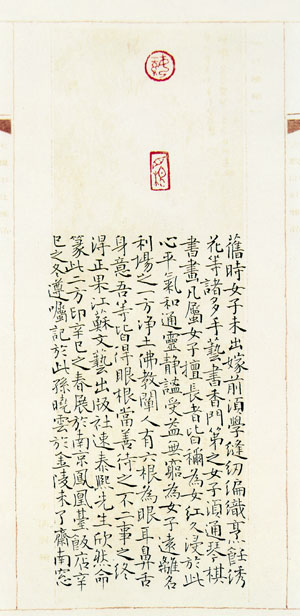 舊時女子未出嫁前須學縫紉編織烹飪綉
花等諸多手藝書香門第之女子須通琴棋
書畫凡屬女子擅長者皆稱為女紅久浸於此
心平氣和通靈靜謐受益無窮為女子遠離名
利場之一方淨土佛教闡人有六根為眼耳鼻舌
身意吾等皆得眼根當善待之不二事之終
得正果江蘇文藝出版社速泰熙先生欣然命
篆此二方印辛巳之春展於南京鳳凰臺飯店辛
巳之冬遵囑記於此孫曉雲於金陵未了齋南窗